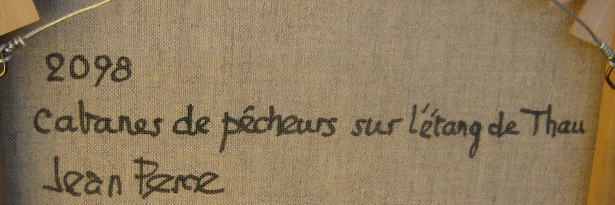 2098
Cabanes de pêcheurs sur l'étang de Thau
Jean Perce